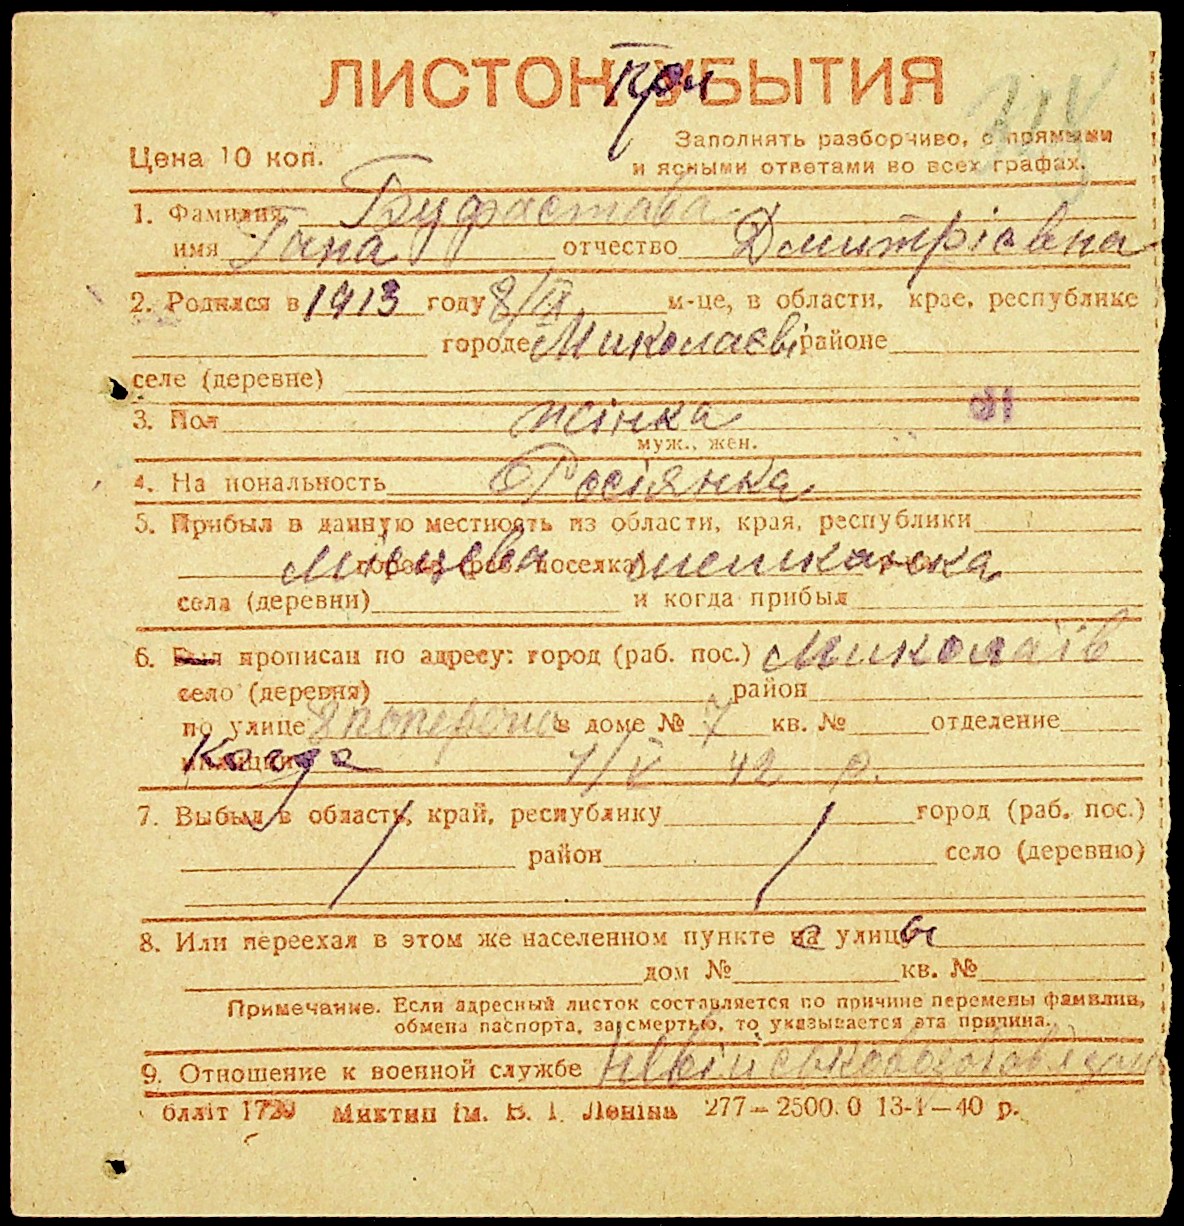 ЛИСТОК УБЫТИЯ
При
Цена 10 коп.
Заполнять разборчиво, с прямыми
и ясными ответами во всех графах.
1. Фамилия
имя Гана отчество Дмитрієвна
2. Родился в 1913 году 8/ м-це, в области, крае, республике
городе Миколаєві районе
селе (деревне)
3. Пол жінка
муж., жен.
4. Национальность Росіянка
5. Прибыл в данную местность из области, края, республики
Місцева поселка мешканка
села (деревни) и когда прибыл
6. Был прописан по адресу: город (раб. пос.) Миколаїв
село (деревня) район
по улице 8 поперечна в доме № 7 кв. № отделение
милиции Когда 1/V 42 р.
7. Выбыл в область, край, республику город (раб. пос.)
район село (деревню)
8. Или переехал в этом же населенном пункте на улицу
дом № кв. №
Примечание. Если адресный листок составляется по причине перемены фамилии,
обмена паспорта, за смертью, то указывается эта причина.
9. Отношение к военной службе
блліт 1729 Миктип ім. В. І. Леніна 277—2500.0 13-І—40 р.